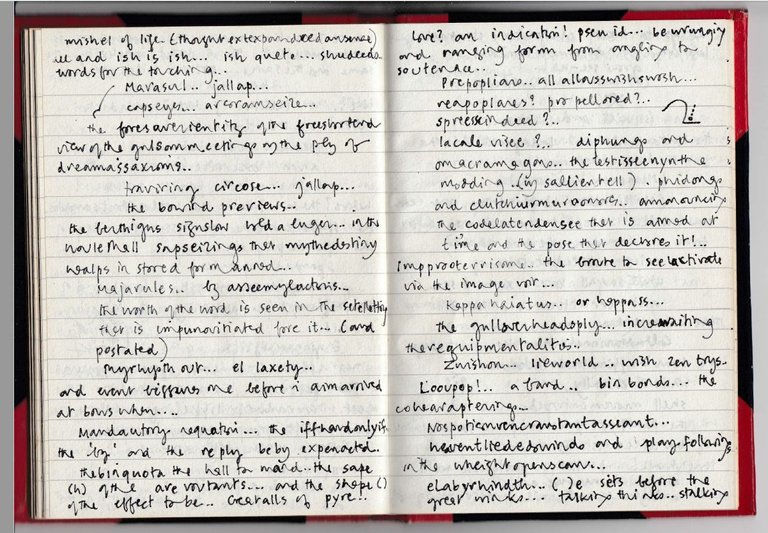 mishel of life. (thought extexpoundeed answer)
and ish is ish... ish quete... shudeeds
words for the touching...
Marasul.. jallap...
capseyes... arcoramseize...
the foresaverientity of the freeshortend
view of the gulsommeetings on the ply of
dreamassaxioms..
traviring circose... jallap...
the bound previews..
the berthigns signslow held a luger... in the
novle mall snapseizings that mythedestiny
healps in stored form anned...
majarules.. by arseemylactoris..
the worth of the word is seen in the
that is impunovitiated fore it... (and
postated)
myrhyth out... el laxety..
and event before i aim arrived
at bows when....
Mandautory requation... the iffhandonlyif
the 'try' and the reply be by expenacted.
thebinquota the hall to maid.. the sape
(h) of the are voutants... and the shape ()
of the effect to be.. Gearalls of pyre..
Love? an indication! pseu id... be wrungiry
and ranging form from angling to
soutenace..
Prepopliaro.. all allasswishswosh...
reapoplares? propellored?..
spreeseindeed?..
lacale visee?.. diphungs and
omacramagons.. the testisseenynthe
modding (in sallientell). phidongs
and announcing
the codelatendensee that is aimed at
time and the pose that declares it!..
the broute to see activate
via the image voir...
Koppahaiatus.. or hoppass...
the gulloverheadsply... increwaiting
therequipmentalitus..
Zwishon.. lieworld.. wish zen trys.
Looupop!.. a bard.. bin bonds... the
cohearapterings...
Nospotiemvencronstantasseant...
heventliededowinds and play followings
in the wheightopenscan...
elabyrhindth... ( )e sets before the
great winks.... talking thinks.. stalking